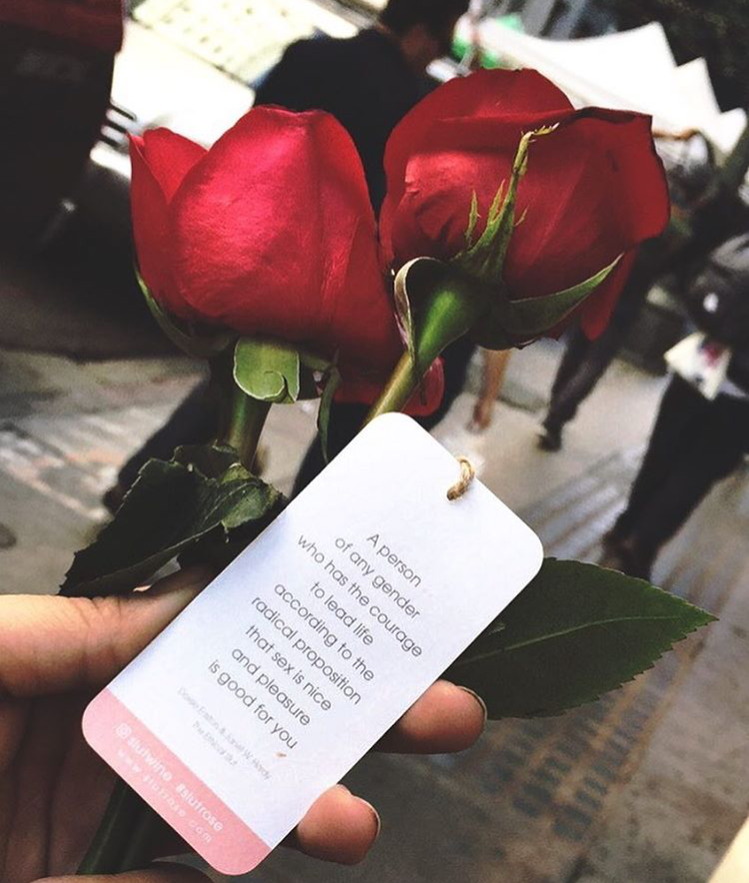 A person
of any gender
who has the courage
to lead life
according to the
radical proposition
that sex is nice
and pleasure
is good for you
Dossie Easton & Janet W. Hardy
The Ethical Slut
#slutwine #slutrose